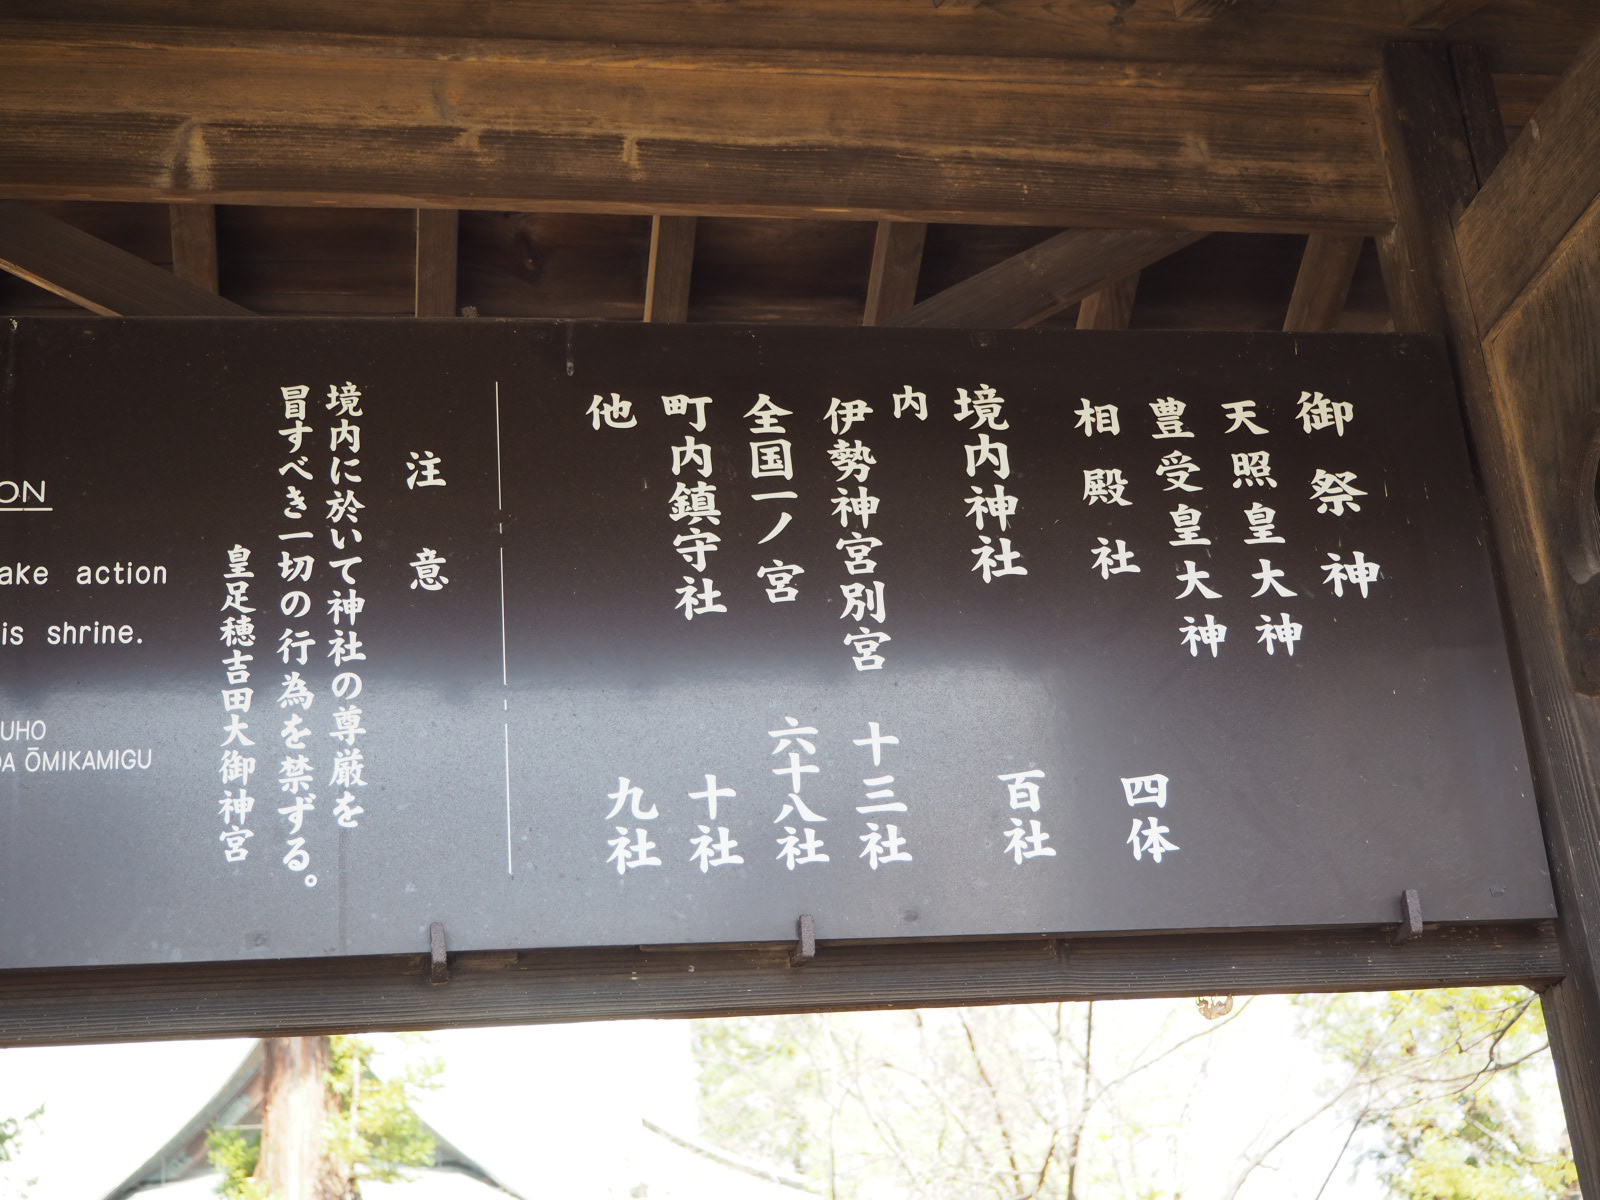 御祭神
天照皇大神
豊受皇大神
相殿社 四体
境内神社 百社
内
伊勢神宮別宮 十三社
全国一ノ宮 六十八社
町内鎮守社 十社
他 九社
注意
境内に於いて神社の尊厳を
冒すべき一切の行為を禁ずる。
皇足穂吉田大御神宮
ON
ake action
is shrine.
UHO
DA ŌMIKAMIGU